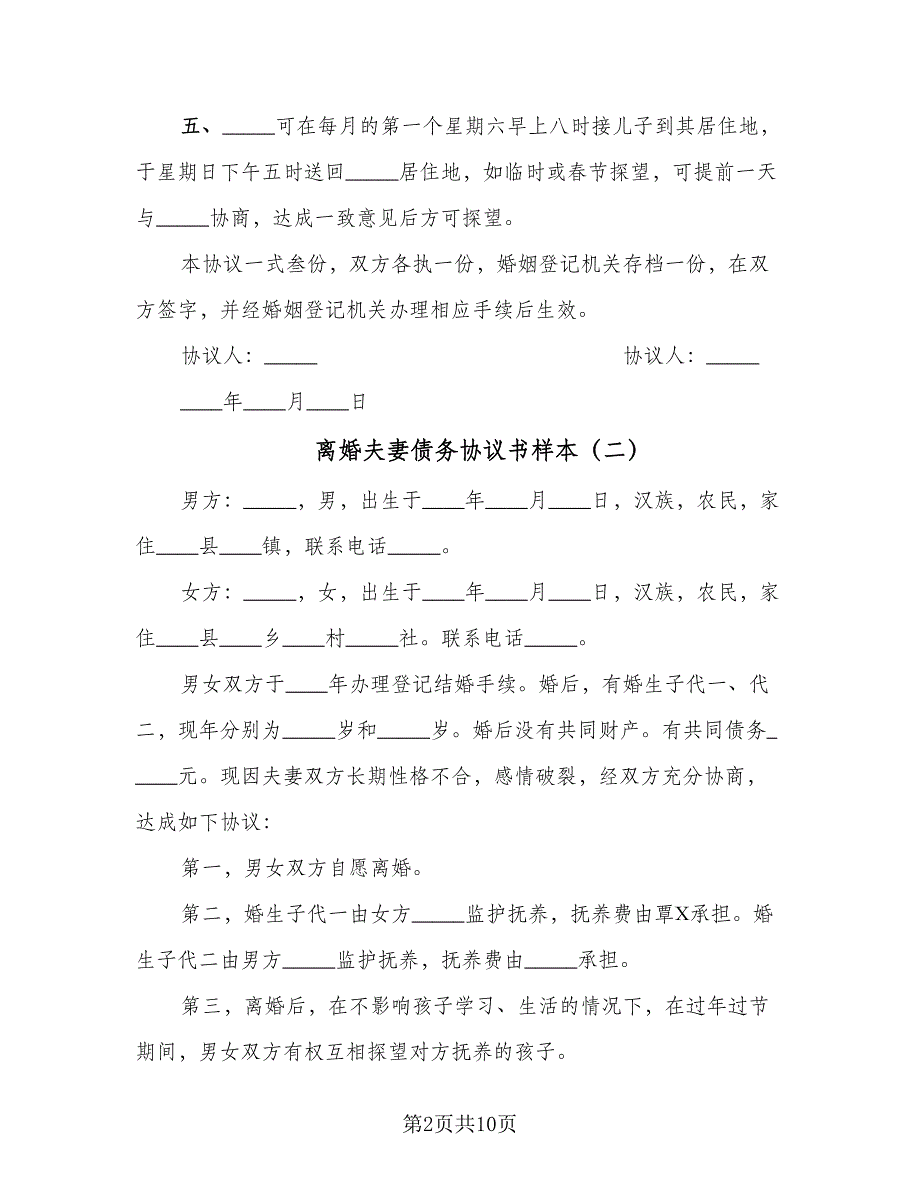 五、_____可在每月的第一个星期六早上八时接儿子到其居住地，
于星期日下午五时送回_____居住地，如临时或春节探望，可提前一天
与_____协商，达成一致意见后方可探望。
本协议一式叁份，双方各执一份，婚姻登记机关存档一份，在双
方签字，并经婚姻登记机关办理相应手续后生效。
协议人：_____ 协议人：_____
____年____月____日
离婚夫妻债务协议书样本（二）
男方：_____，男，出生于____年____月____日，汉族，农民，家
住____县____镇，联系电话_____。
女方：_____，女，出生于____年____月____日，汉族，农民，家
住____县____乡____村_____社。联系电话_____。
男女双方于____年办理登记结婚手续。婚后，有婚生子代一、代
二，现年分别为_____岁和_____岁。婚后没有共同财产。有共同债务_
____元。现因夫妻双方长期性格不合，感情破裂，经双方充分协商，
达成如下协议：
第一，男女双方自愿离婚。
第二，婚生子代一由女方_____监护抚养，抚养费由覃X承担。婚
生子代二由男方_____监护抚养，抚养费由_____承担。
第三，离婚后，在不影响孩子学习、生活的情况下，在过年过节
期间，男女双方有权互相探望对方抚养的孩子。
第2页共10页